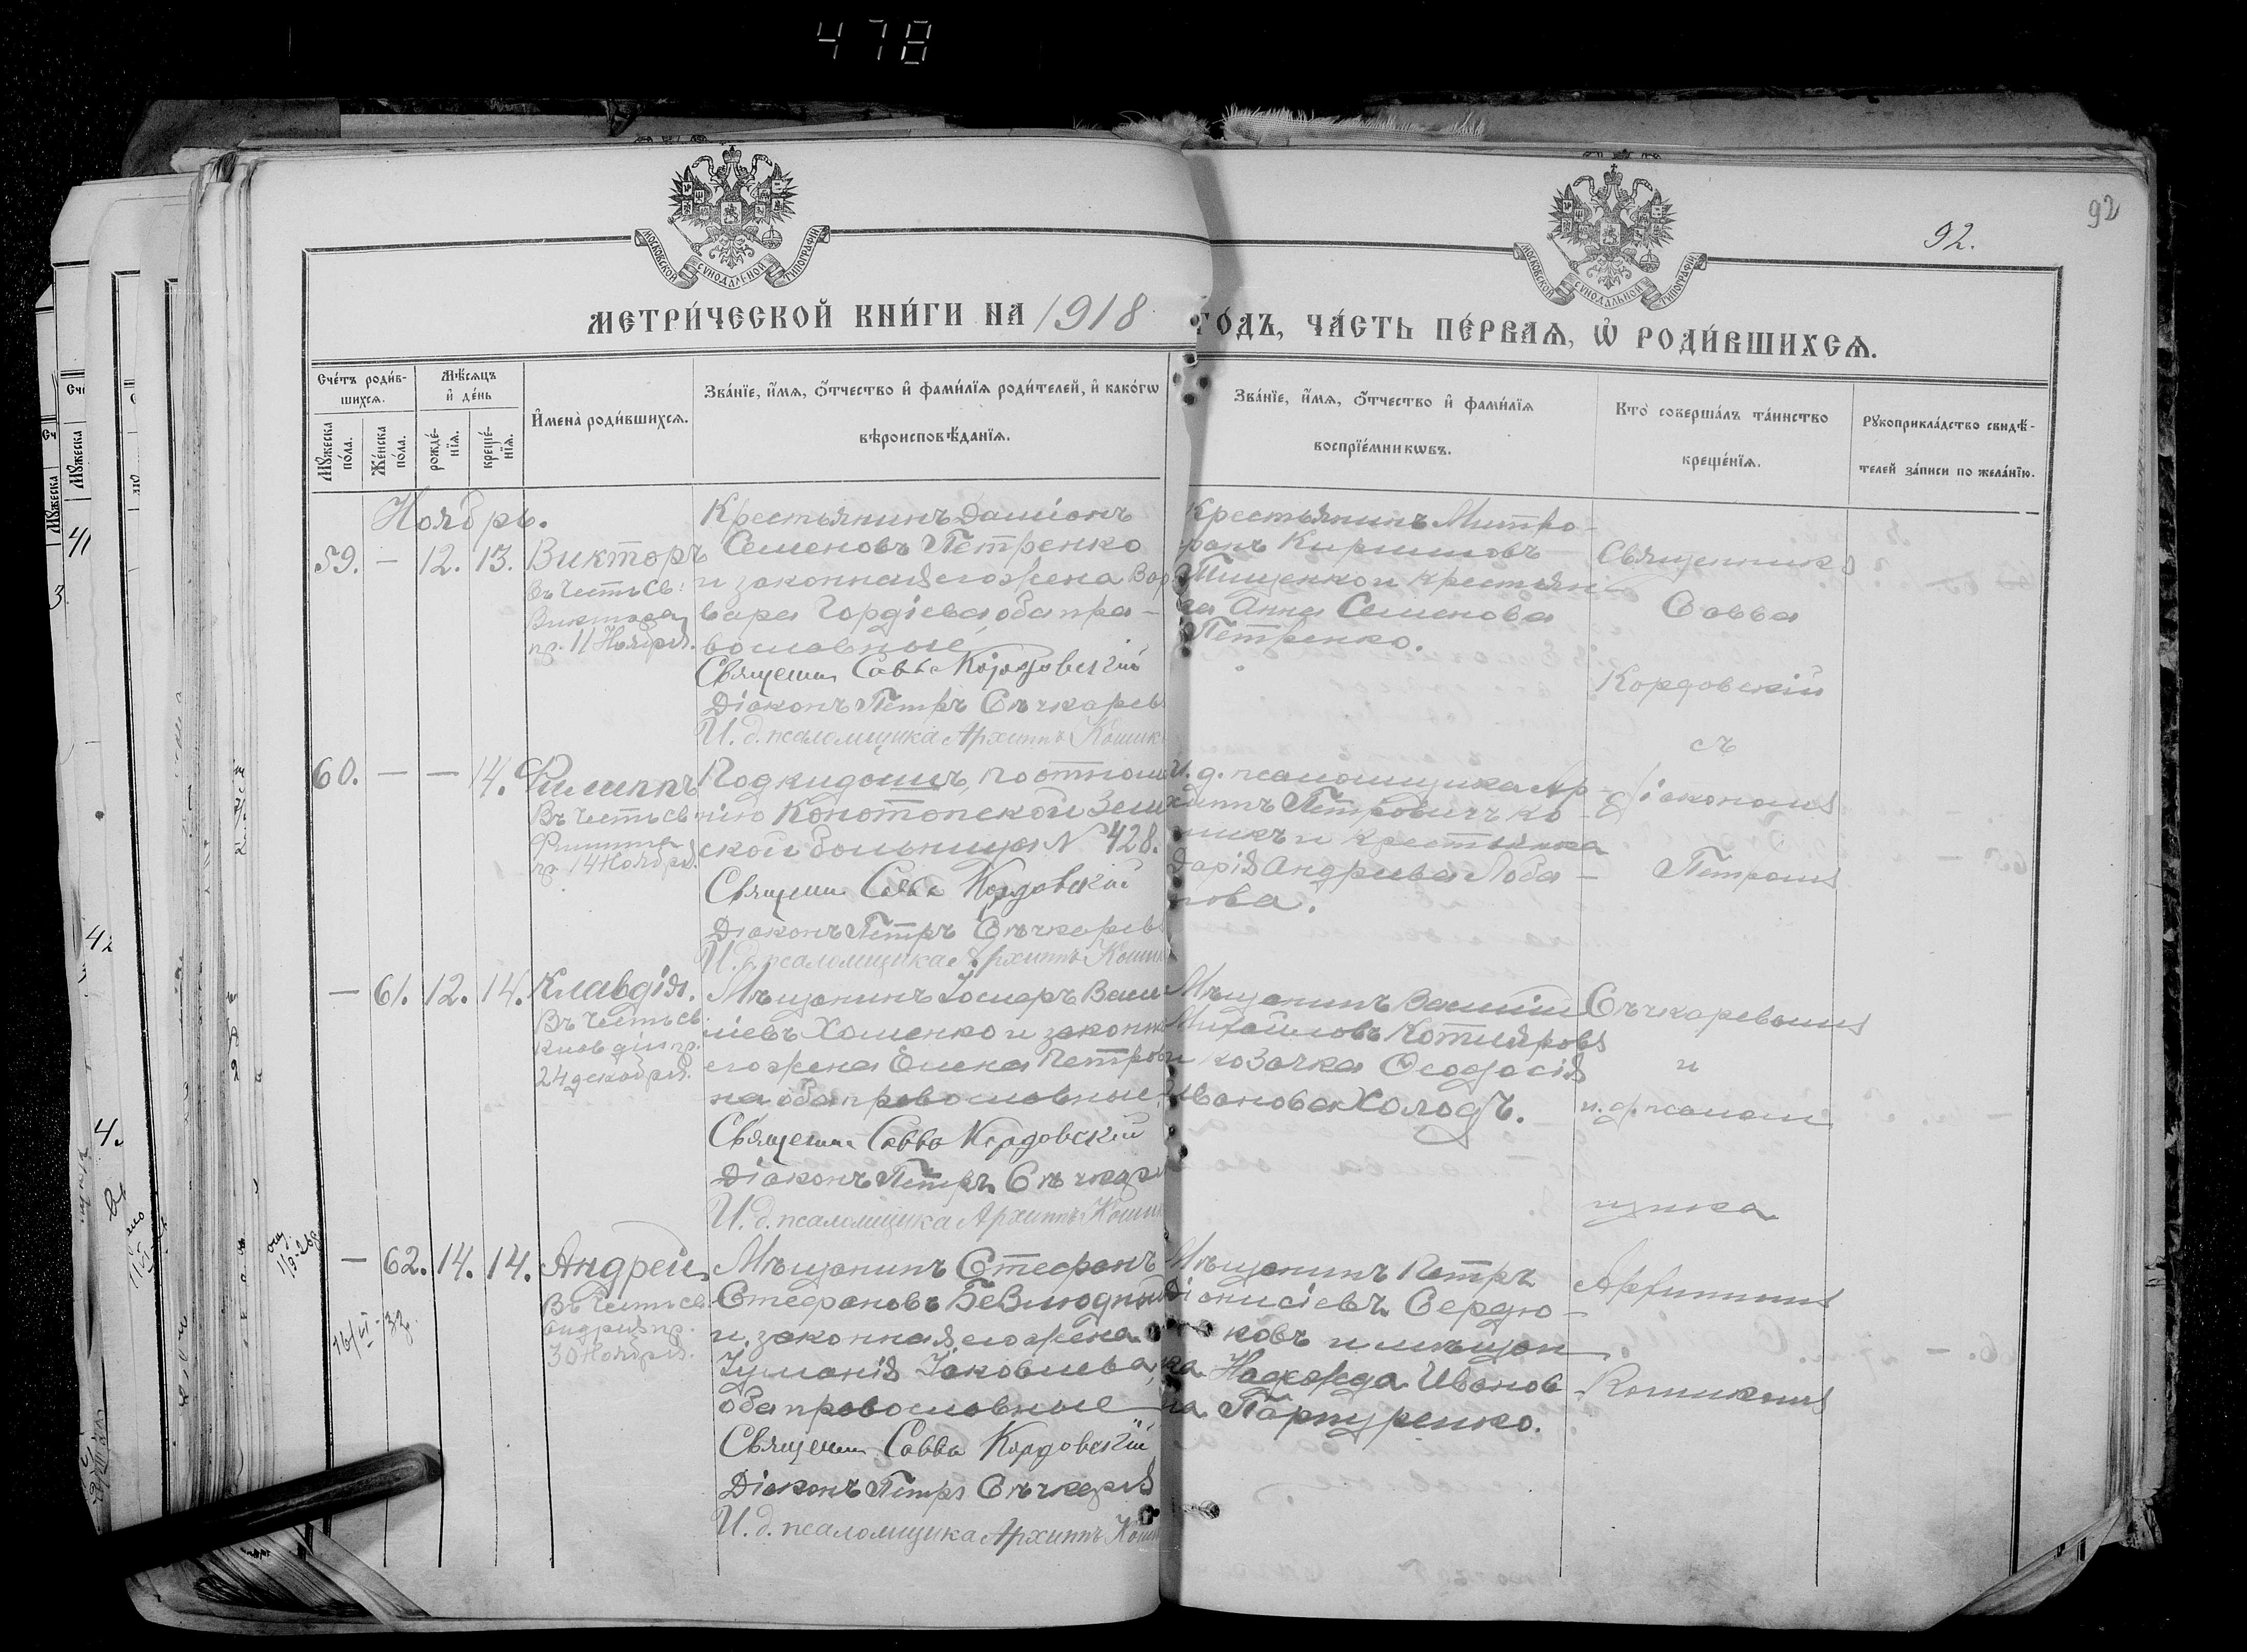 478
92
92.
МОСКОВСКОЙ СѴНОДАЛЬНОЙ ТИПОГРАФІИ
МОСКОВСКОЙ СѴНОДАЛЬНОЙ ТИПОГРАФІИ
МЕТРИ́ЧЕСКОЙ КНИ́ГИ НА 1918 ГО́ДЪ, ЧА́СТЬ ПЕ́РВАѦ, Ѡ҆ РОДИ́ВШИХСѦ.
Сче́тъ роди́в-
шихсѧ.
Мѣ́сѧцъ
и҆ де́нь
Мꙋ́жеска
по́ла.
Же́нска
по́ла.
рожде́-
нїѧ.
креще́-
нїѧ.
И҆мена̀ роди́вшихсѧ.
Зва́нїе, и҆́мѧ, ѻ҆́тчество и҆ фами́лїѧ роди́телей, и҆ како́гѡ
вѣроисповѣ́данїѧ.
Зва́нїе, и҆́мѧ, ѻ҆́тчество и҆ фами́лїѧ
воспрїе́мникѡвъ.
Кто̀ соверша́лъ та́инство
креще́нїѧ.
Рꙋкоприкла́дство свидѣ́-
телей за́писи по жела́нїю.
Ноябрь.
59. — 12. 13. Викторъ
въ честь св.
Виктора
пр. 11 Ноября.
Крестьянинъ Даміанъ
Семеновъ Петренко
и законная его жена Вар
вара Гордіева оба пра-
вославные
Священ. Савва Кордовскій
Діаконъ Петръ Сѣчкаревъ
И. д. псаломщика Архиппъ Кошик
Крестьянинъ Митро-
фанъ Кирилловъ
Тищенко и крестьян
ка Анна Семенова
Петренко.
Священникъ
Савва
Кордовскій
съ
діакономъ
Петромъ
Сѣчкаревымъ
и
и. д. псалом
щика
Архиппомъ
Кошикомъ
60. — — 14. Филиппъ
Въ честь св
Филиппа
пр. 14 Ноября.
Подкидышъ, по отноше
нію Конотопской Зем
ской больницы № 428.
Священ. Савва Кордовскій
Діаконъ Петръ Сѣчкаревъ
И. д. псаломщика Архиппъ Кошик
И. д. псаломщика Ар-
хиппъ Петровичъ Ко-
шикъ и крестьянка
Дарія Андреева Лоба-
нова.
— 61. 12. 14. Клавдія.
Въ честь св.
Клавдіи пр.
24 декабря.
Мѣщанинъ Іосифъ Васи
ліевъ Хоменко и законн
его жена Елена Петров
на оба православные.
Священ. Савва Кордовскій
Діаконъ Петръ Сѣчкар
И. д. псаломщика Архиппъ Кошик
Мѣщанинъ Василій
Михайловъ Котляровъ
и козачка Ѳеодосія
Иванова Холодъ.
— 62. 14. 14. Андрей
Въ честь св.
Андрея пр.
30 Ноября.
Мѣщанинъ Стефанъ
Стефановъ Безлюдный
и законная его жена
Іуліанія Іаковлева,
оба православные
Священ. Савва Кордовскій
Діаконъ Петръ Сѣчкаревъ
И. д. псаломщика Архиппъ Кошик
Мѣщанинъ Петръ
Діонисіевъ Сердю-
ковъ и мѣщан
ка Надежда Иванов
на Парпуренко.